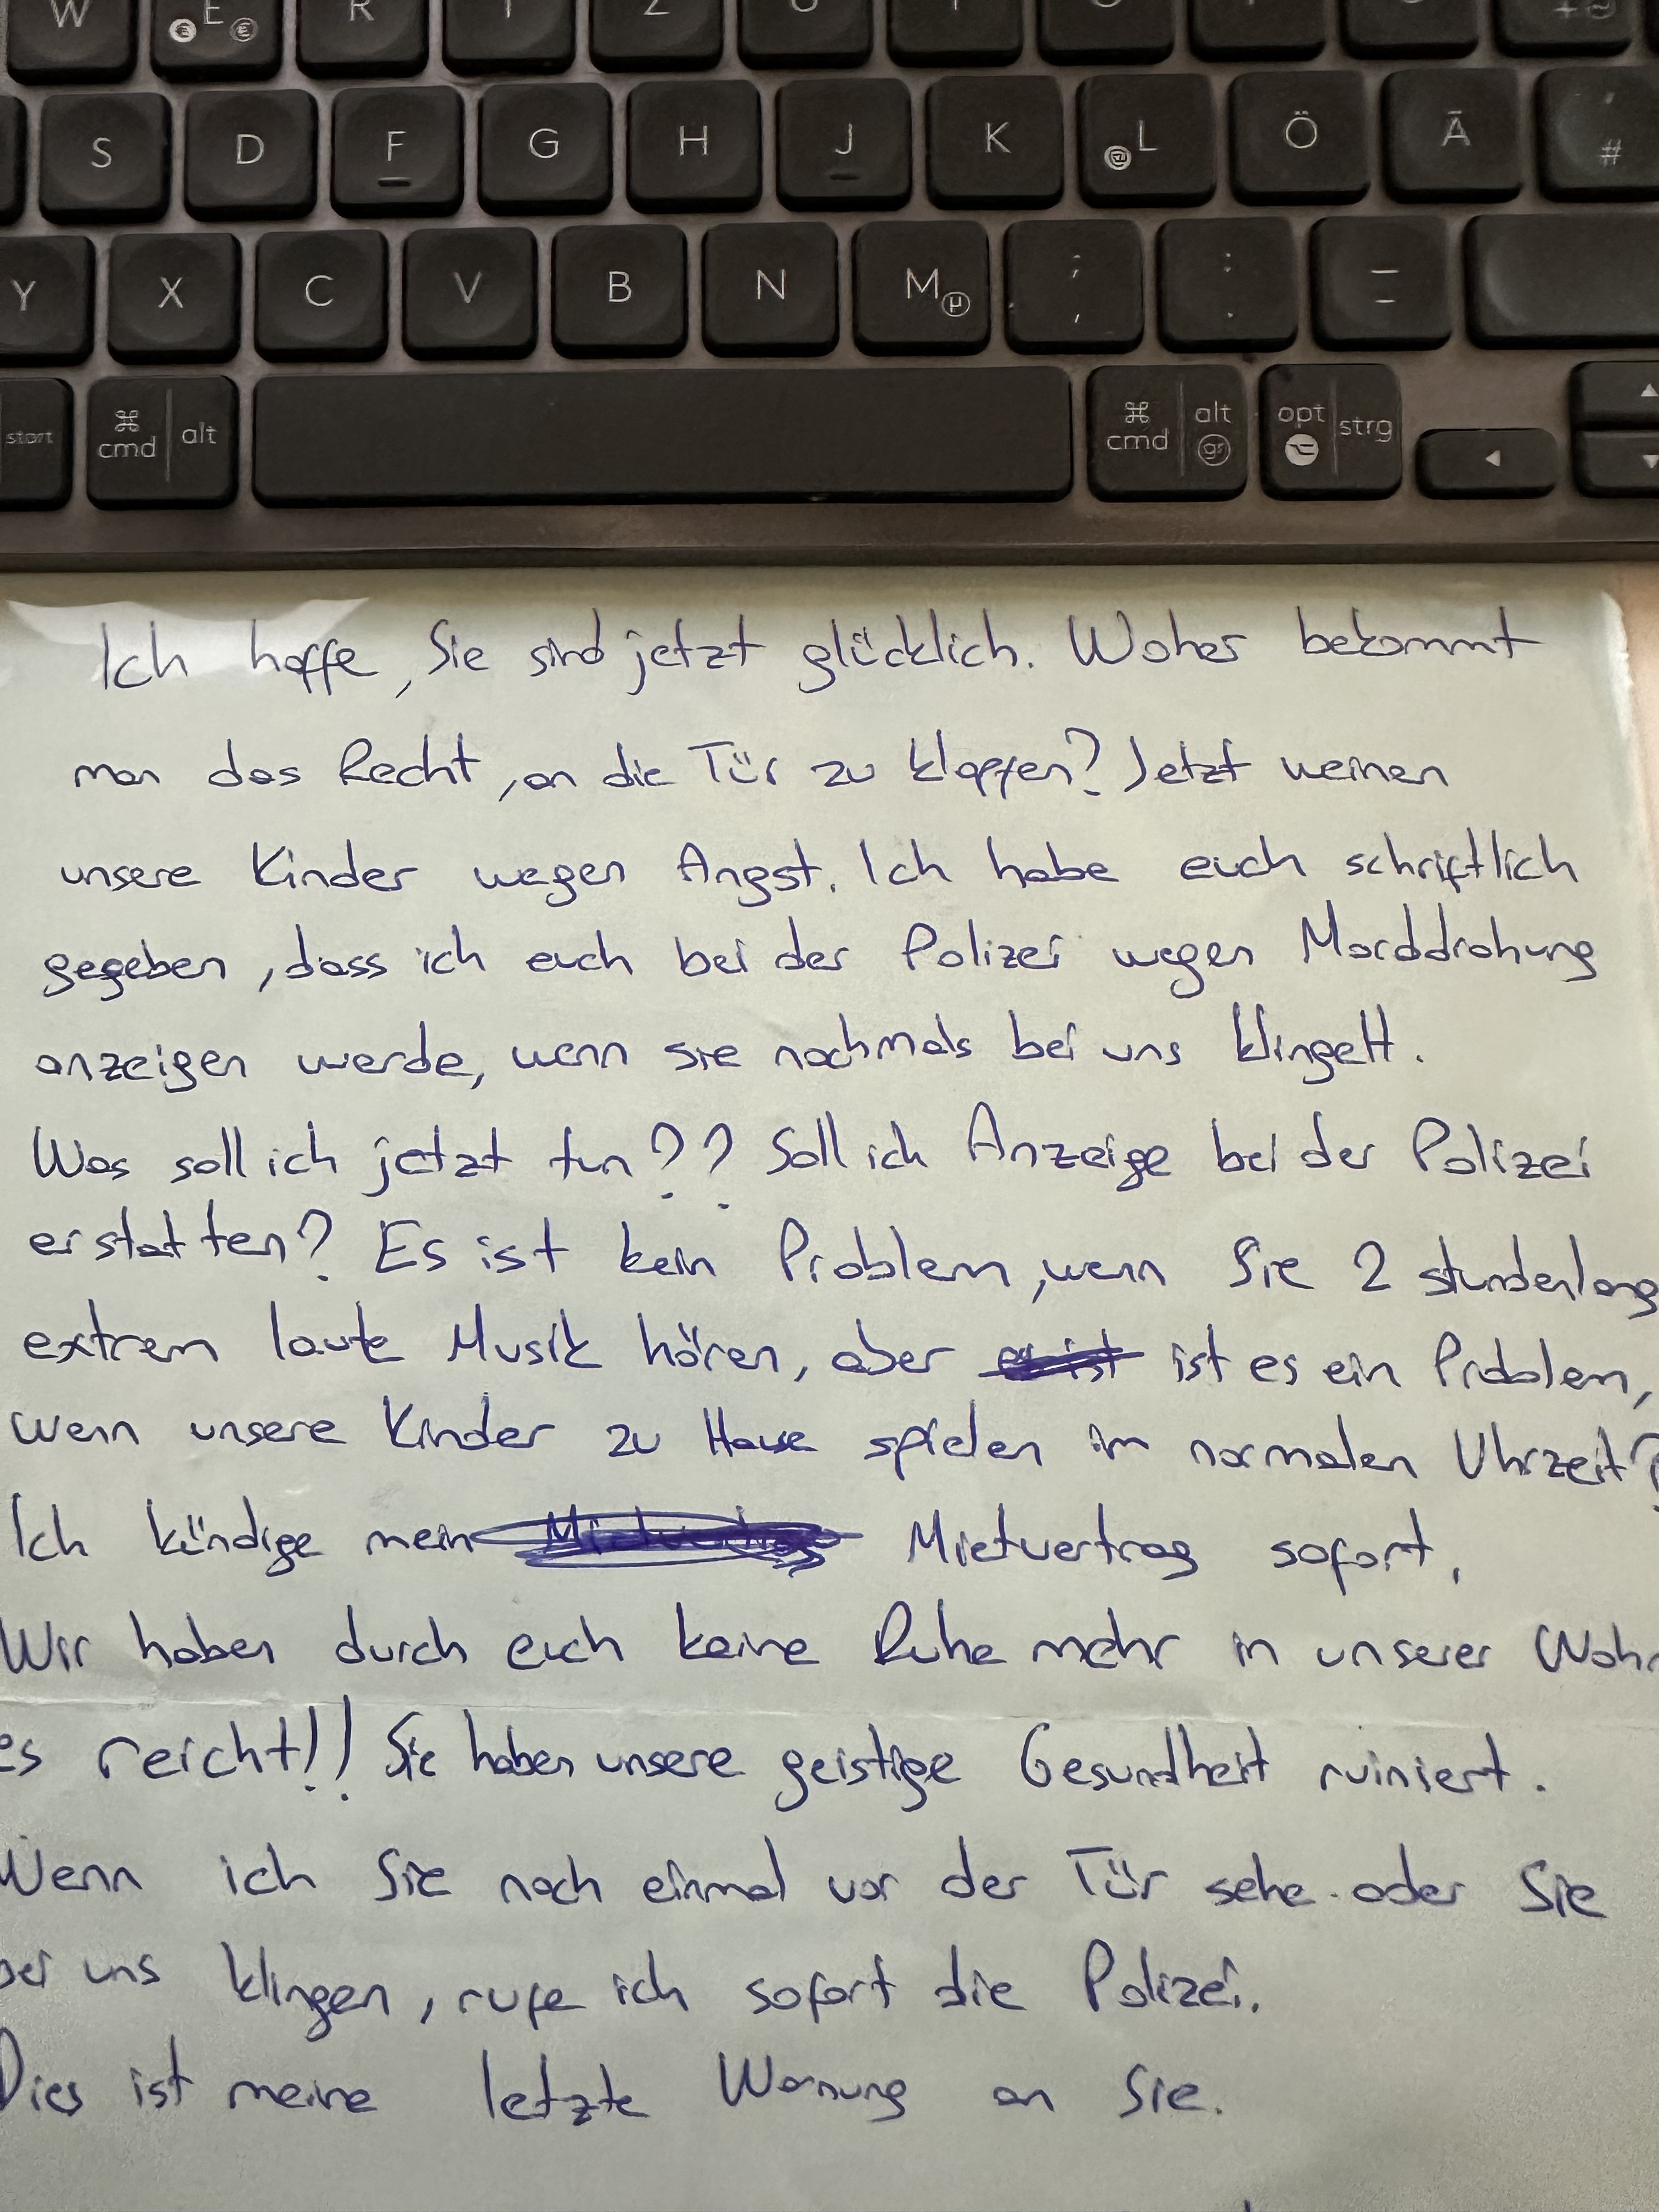 W E R
S D F G H J K L Ö Ä #
Y X C V B N M µ ; , : . –
start ⌘ cmd alt ⌘ cmd alt gr opt strg
Ich hoffe, Sie sind jetzt glücklich. Woher bekommt
man das Recht, an die Tür zu klopfen? Jetzt weinen
unsere Kinder wegen Angst. Ich habe euch schriftlich
gegeben, dass ich euch bei der Polizei wegen Morddrohung
anzeigen werde, wenn sie nochmals bei uns klingelt.
Was soll ich jetzt tun?? Soll ich Anzeige bei der Polizei
erstatten? Es ist kein Problem, wenn Sie 2 stundenlang
extrem laute Musik hören, aber ist es ein Problem,
wenn unsere Kinder zu Hause spielen im normalen Uhrzeit?
Ich kündige mein Mietvertrag sofort.
Wir haben durch euch keine Ruhe mehr in unserer Wohn
es reicht!! Sie haben unsere geistige Gesundheit ruiniert.
Wenn ich Sie noch einmal vor der Tür sehe oder Sie
bei uns klingen, rufe ich sofort die Polizei.
Dies ist meine letzte Warnung an Sie.